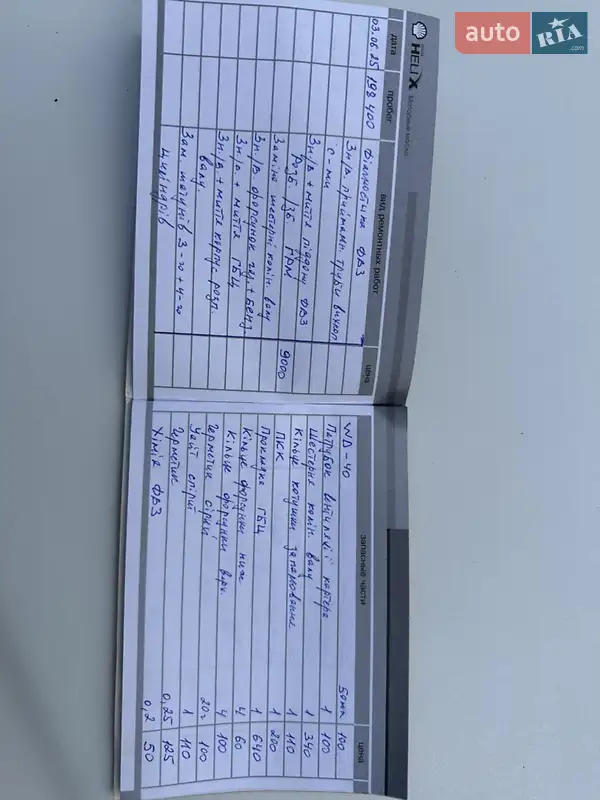 auto RIA .com
HELIX
моторные масла
дата
пробег
вид ремонтных работ
цена
03.06.25 198 400 Діагностика ДВЗ
Зн./в. приймальн. труби вихлоп
с-ми
Зн./в + миття піддону ДВЗ
Розб./зб. ГРМ
Заміна шестерні колін. валу 9000
Зн./в. форсунок газ. + бенз
Зн./в + миття ГБЦ
Зн./в + миття корпус розп.
валу.
Зам. шатунів 3-го + 4-го
циліндрів
запасные части
цена
WD-40 50мл 100
Патрубок вентиляції картера 1 100
Шестерня колін. валу 1 340
Кільце котушки запалювання 1 110
ПКК 1 200
Прокладка ГБЦ 1 640
Кільце форсунки ниж 4 60
Кільце форсунки верх. 4 100
Герметик сірий 20г 100
Уайт спіріт 1 110
Герметик 0,25 125
Хімія ДВЗ 0,2 50